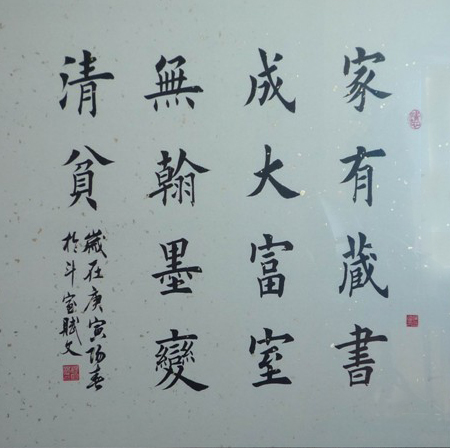 家有藏書
成大富室
無翰墨變
清貧
歲在庚寅陽春
於斗室賦文